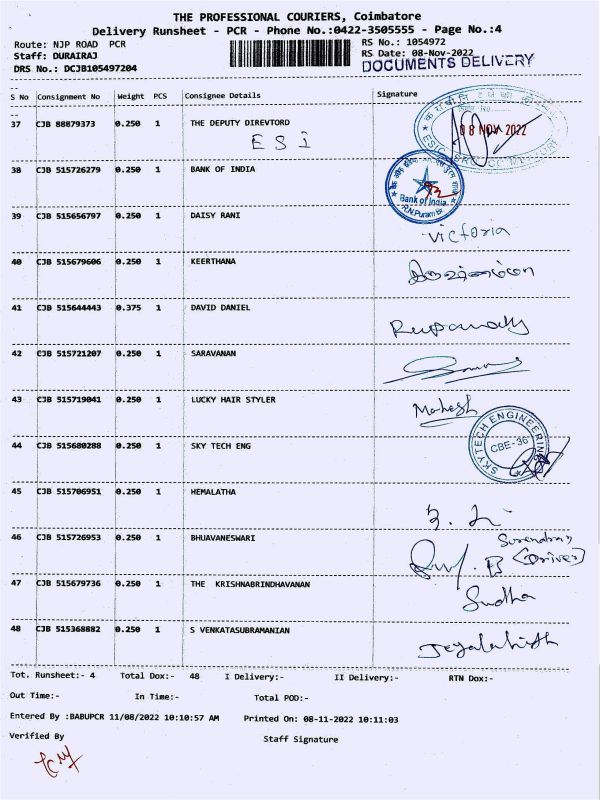 THE PROFESSIONAL COURIERS, Coimbatore
Delivery Runsheet - PCR - Phone No.:0422-3505555 - Page No.:4
Route: NJP ROAD PCR
RS No.: 1054972
Staff: DURAIRAJ
RS Date: 08-Nov-2022
DRS No.: DCJB105497204
DOCUMENTS DELIVERY
S No Consignment No Weight PCS Consignee Details Signature
37 CJB 88879373 0.250 1 THE DEPUTY DIREVTORD
08 NOV 2022
ESI
38 CJB 515726279 0.250 1 BANK OF INDIA
Bank of India
R.N.Puram Br.
39 CJB 515656797 0.250 1 DAISY RANI
Victoria
40 CJB 515679606 0.250 1 KEERTHANA
41 CJB 515644443 0.375 1 DAVID DANIEL
42 CJB 515721207 0.250 1 SARAVANAN
43 CJB 515719041 0.250 1 LUCKY HAIR STYLER
Mahesh
44 CJB 515680288 0.250 1 SKY TECH ENG
SKYTECH ENGINEERING
CBE-36
45 CJB 515706951 0.250 1 HEMALATHA
46 CJB 515726953 0.250 1 BHUAVANESWARI
(Driver)
47 CJB 515679736 0.250 1 THE KRISHNABRINDHAVANAN
Sudha
48 CJB 515368882 0.250 1 S VENKATASUBRAMANIAN
Tot. Runsheet:- 4 Total Dox:- 48 I Delivery:- II Delivery:- RTN Dox:-
Out Time:- In Time:- Total POD:-
Entered By :BABUPCR 11/08/2022 10:10:57 AM Printed On: 08-11-2022 10:11:03
Verified By Staff Signature